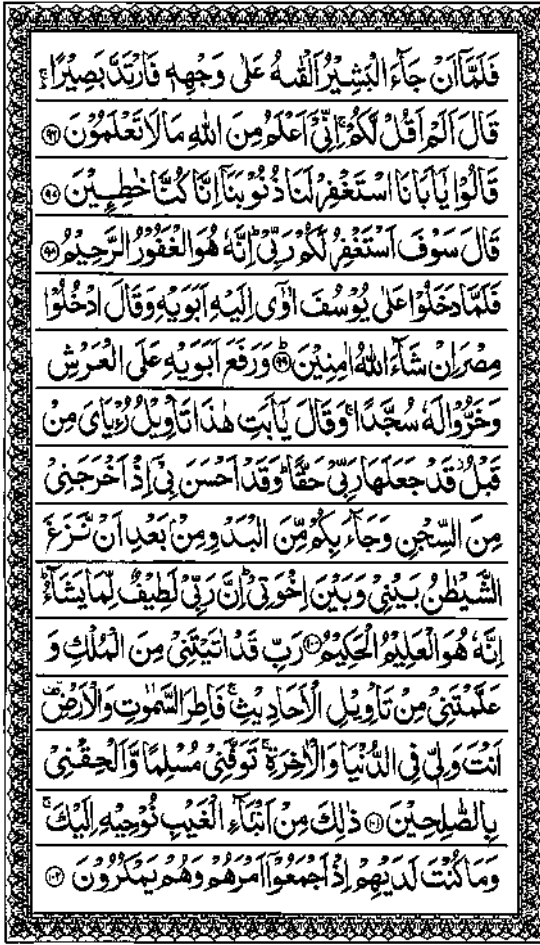 فَلَمَّاۤ اَنْ جَآءَ الْبَشِیْرُ اَلْقٰىهُ عَلٰی وَجْهِهٖ فَارْتَدَّ بَصِیْرًا ۚ
قَالَ اَلَمْ اَقُلْ لَّكُمْ ۚ اِنِّیْۤ اَعْلَمُ مِنَ اللّٰهِ مَا لَا تَعْلَمُوْنَ ﴿۹۶﴾
قَالُوْا یٰۤاَبَانَا اسْتَغْفِرْ لَنَا ذُنُوْبَنَاۤ اِنَّا كُنَّا خٰطِـِٕیْنَ ﴿۹۷﴾
قَالَ سَوْفَ اَسْتَغْفِرُ لَكُمْ رَبِّیْ ؕ اِنَّهٗ هُوَ الْغَفُوْرُ الرَّحِیْمُ ﴿۹۸﴾
فَلَمَّا دَخَلُوْا عَلٰی یُوْسُفَ اٰوٰۤی اِلَیْهِ اَبَوَیْهِ وَقَالَ ادْخُلُوْا
مِصْرَ اِنْ شَآءَ اللّٰهُ اٰمِنِیْنَ ﴿۹۹﴾ وَرَفَعَ اَبَوَیْهِ عَلَی الْعَرْشِ
وَخَرُّوْا لَهٗ سُجَّدًا ۚ وَقَالَ یٰۤاَبَتِ هٰذَا تَاْوِیْلُ رُءْیَایَ مِنْ
قَبْلُ ؗ قَدْ جَعَلَهَا رَبِّیْ حَقًّا ؕ وَقَدْ اَحْسَنَ بِیْۤ اِذْ اَخْرَجَنِیْ
مِنَ السِّجْنِ وَجَآءَ بِكُمْ مِّنَ الْبَدْوِ مِنْۢ بَعْدِ اَنْ نَّزَغَ
الشَّیْطٰنُ بَیْنِیْ وَبَیْنَ اِخْوَتِیْ ؕ اِنَّ رَبِّیْ لَطِیْفٌ لِّمَا یَشَآءُ ؕ
اِنَّهٗ هُوَ الْعَلِیْمُ الْحَكِیْمُ ﴿۱۰۰﴾ رَبِّ قَدْ اٰتَیْتَنِیْ مِنَ الْمُلْكِ وَ
عَلَّمْتَنِیْ مِنْ تَاْوِیْلِ الْاَحَادِیْثِ ۚ فَاطِرَ السَّمٰوٰتِ وَالْاَرْضِ ۫
اَنْتَ وَلِیّٖ فِی الدُّنْیَا وَالْاٰخِرَةِ ۚ تَوَفَّنِیْ مُسْلِمًا وَّاَلْحِقْنِیْ
بِالصّٰلِحِیْنَ ﴿۱۰۱﴾ ذٰلِكَ مِنْ اَنْۢبَآءِ الْغَیْبِ نُوْحِیْهِ اِلَیْكَ ۚ
وَمَا كُنْتَ لَدَیْهِمْ اِذْ اَجْمَعُوْۤا اَمْرَهُمْ وَهُمْ یَمْكُرُوْنَ ﴿۱۰۲﴾